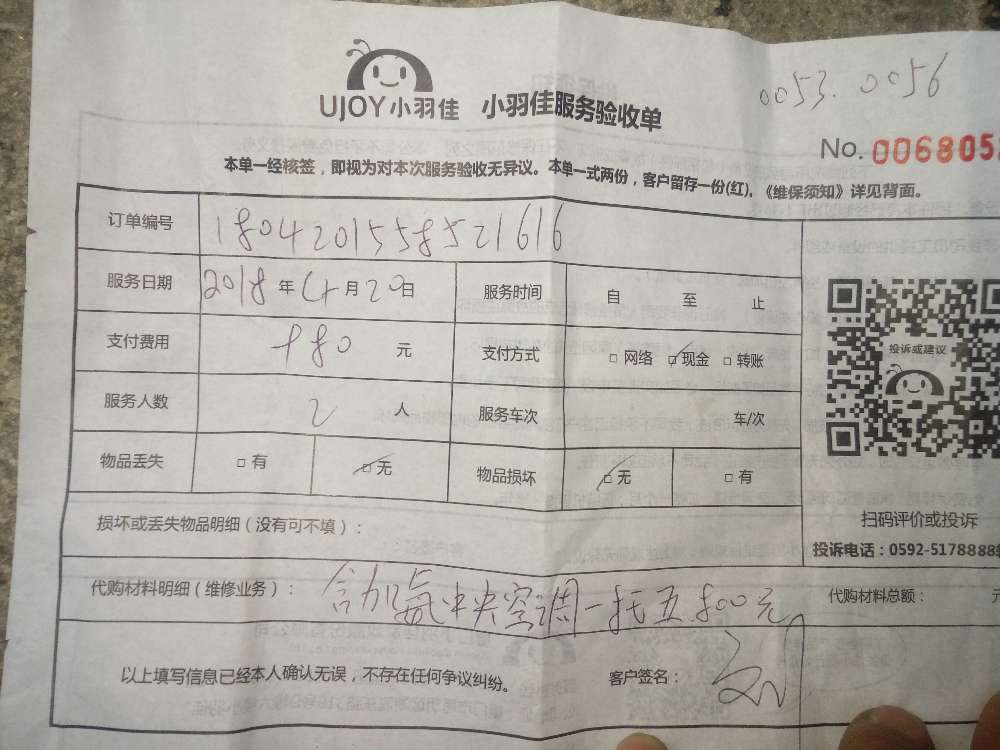 0053.0056
UJOY小羽佳 小羽佳服务验收单
No. 006805
本单一经核签，即视为对本次服务验收无异议。本单一式两份，客户留存一份(红)。《维保须知》详见背面。
订单编号 1804201558521616
服务日期 2018年4月20日 服务时间 自 至 止
支付费用 980 元 支付方式 □网络 □现金 □转账
投诉或建议
服务人数 2 人 服务车次 车/次
物品丢失 □有 □无 物品损坏 □无 □有
损坏或丢失物品明细（没有可不填）：
扫码评价或投诉
投诉电话：0592-5178888
代购材料明细（维修业务）： 含加氟中央空调一托五800元 代购材料总额：
以上填写信息已经本人确认无误，不存在任何争议纠纷。 客户签名：